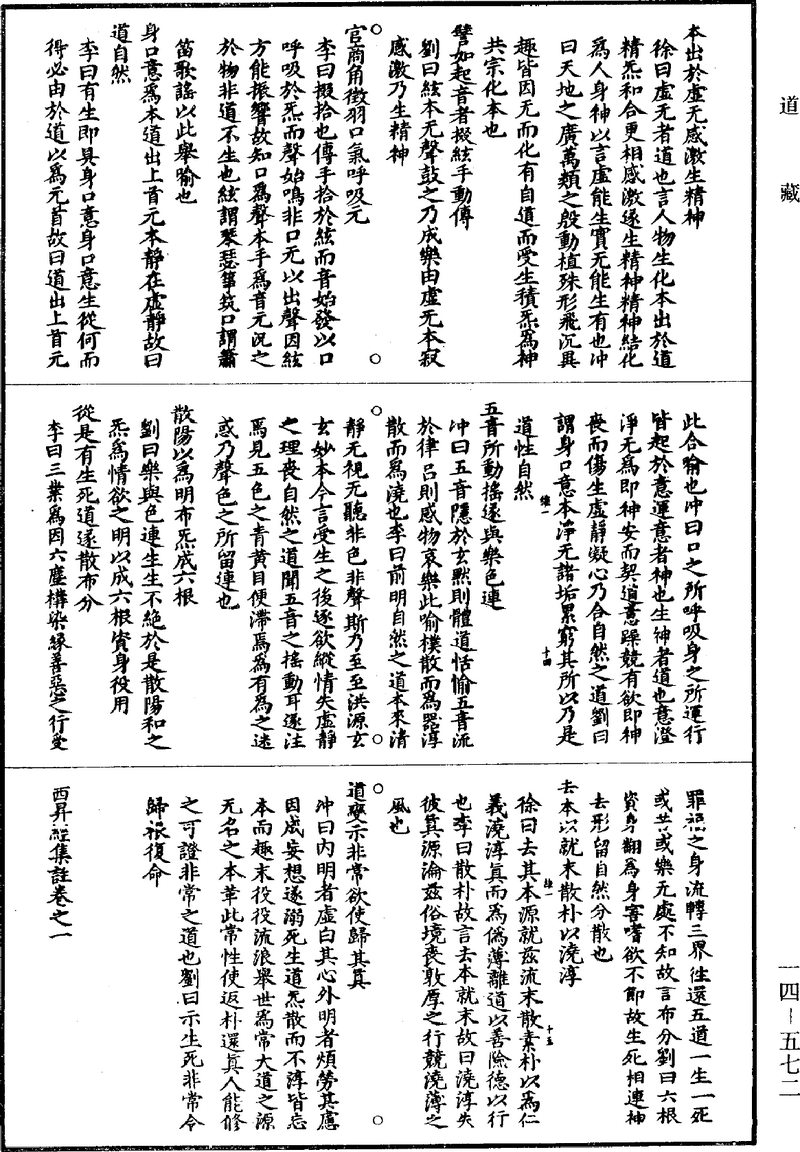 道藏
本出於虛无感激生精神
徐曰虛无者道也言人物生化本出於道
精炁和合更相感激遂生精神精神結化
為人身神以言虛能生實无能生有也冲
曰天地之廣萬類之殷動植殊形飛沉異
趣皆因无而化有自道而受生積炁為神
共宗化本也
譬如起音者掇絃手動傳
劉曰絃本无聲鼓之乃成樂由虛无本寂
感激乃生精神
官商角徵羽口氣呼吸元
李曰掇拾也傳手拾於絃而音始發以口
呼吸於炁而聲始鳴非口无以出聲因絃
方能振響故知口為聲本手為音元況之
於物非道不生也絃謂琴瑟箏筑口謂簫
笛歌謠以此舉喻也
身口意為本道出上首元本靜在虛靜故曰
道自然
李曰有生即具身口意身口意生從何而
得必由於道以為元首故曰道出上首元
此合喻也冲曰口之所呼吸身之所運行
皆起於意運意者神也生神者道也意澄
淨无為即神安而契道意躁競有欲即神
喪而傷生虛靜凝心乃合自然之道劉曰
謂身口意本淨无諸垢累窮其所以乃是
道性自然
五音所動搖遂與樂色連
冲曰五音隱於玄默則體道恬愉五音流
於律呂則感物哀樂此喻樸散而為器淳
散而為澆也李曰前明自然之道本來清
靜无視无聽非色非聲斯乃至至洪源玄
玄妙本今言受生之後遂欲縱情失虛靜
之理喪自然之道聞五音之搖動耳遂注
焉見五色之青黃目便滯焉為有為之迷
惑乃聲色之所留連也
散陽以為明布炁成六根
劉曰樂與色連生生不絕於是散陽和之
炁為情欲之明以成六根資身役用
從是有生死道遂散布分
李曰三業為因六塵搆染緣善惡之行受
罪福之身流轉三界往還五道一生一死
或苦或樂无處不知故言布分劉曰六根
資身翻為身害嗜欲不節故生死相連神
去形留自然分散也
去本以就末散朴以澆淳
徐曰去其本源就茲流末散素朴以為仁
義澆淳真而為偽薄離道以善險德以行
也李曰散朴故言去本就末故曰澆淳失
彼真源淪茲俗境喪敦厚之行競澆薄之
風也
道變示非常欲使歸其真
冲曰內明者虛白其心外明者煩勞其慮
因成妄想遂溺死生道炁散而不淳皆忘
本而趣末役役流浪舉世為常大道之源
无名之本革此常性使返朴還真人能修
之可證非常之道也劉曰示生死非常令
歸根復命
西昇經集註卷之一
十四
十五
一四－五七二